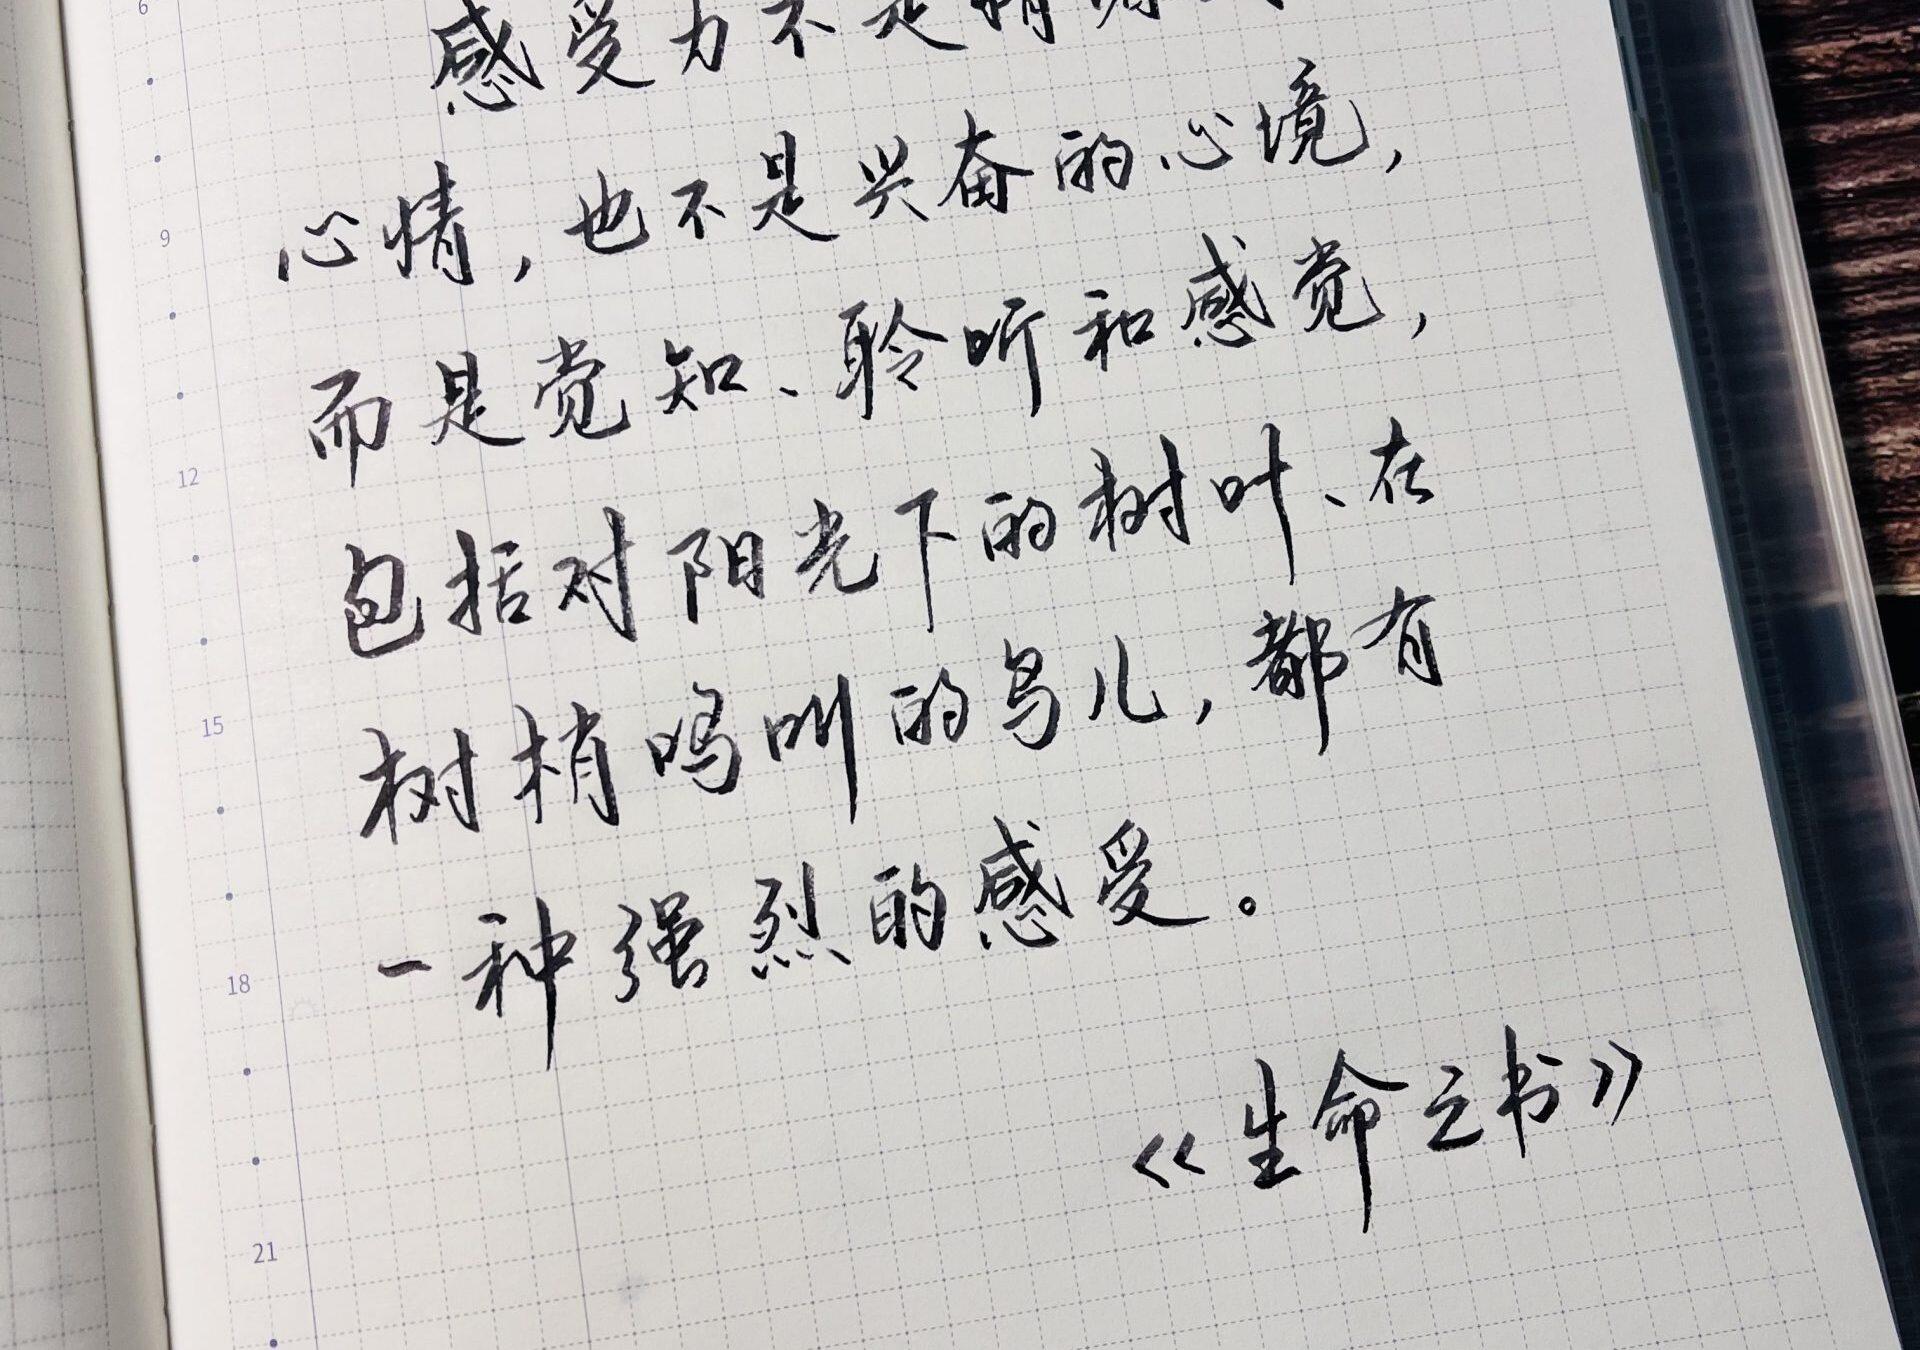 6
感受力不是情
心情，也不是兴奋的心境，
9
而是觉知、聆听和感觉，
12
包括对阳光下的树叶、在
15
树梢鸣叫的鸟儿，都有
18
一种强烈的感受。
《生命之书》
21